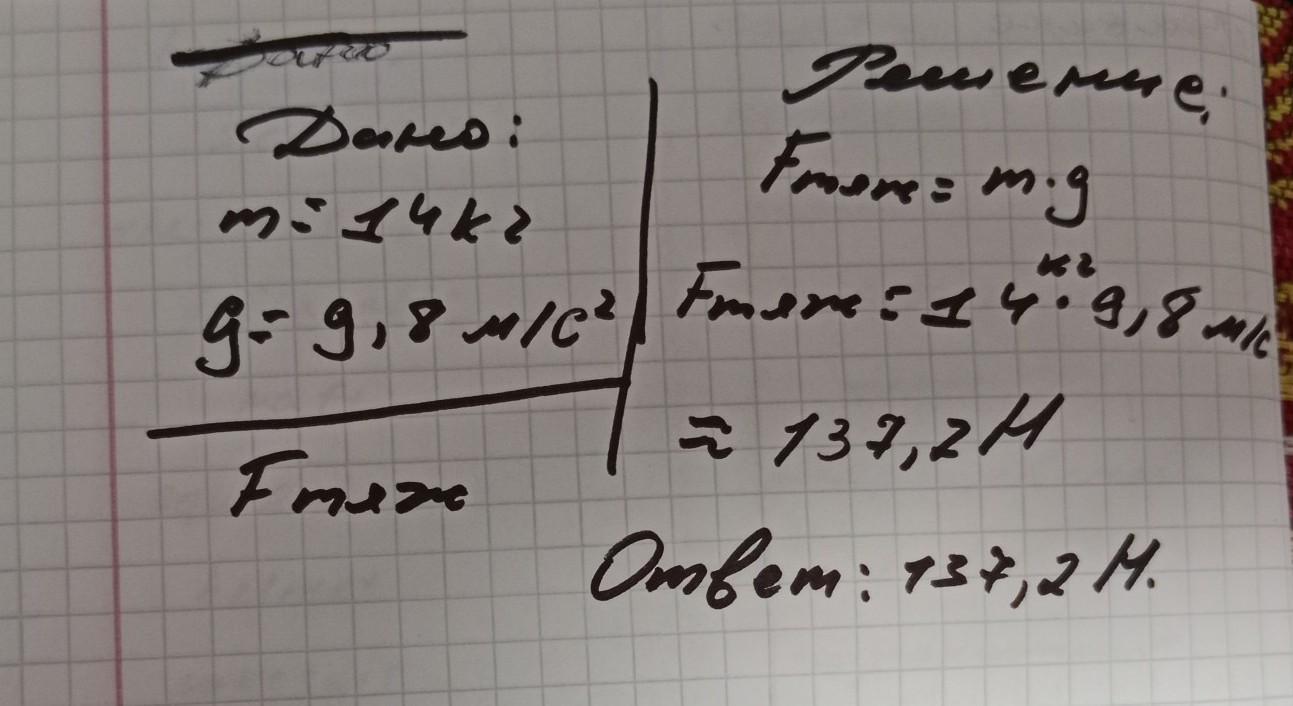 Дано
Дано:
m = 14 кг
g = 9,8 м/с²
Fтяж
Решение:
Fтяж = m·g
Fтяж = 14 кг · 9,8 м/с
≈ 137,2 Н
Ответ: 137,2 Н.